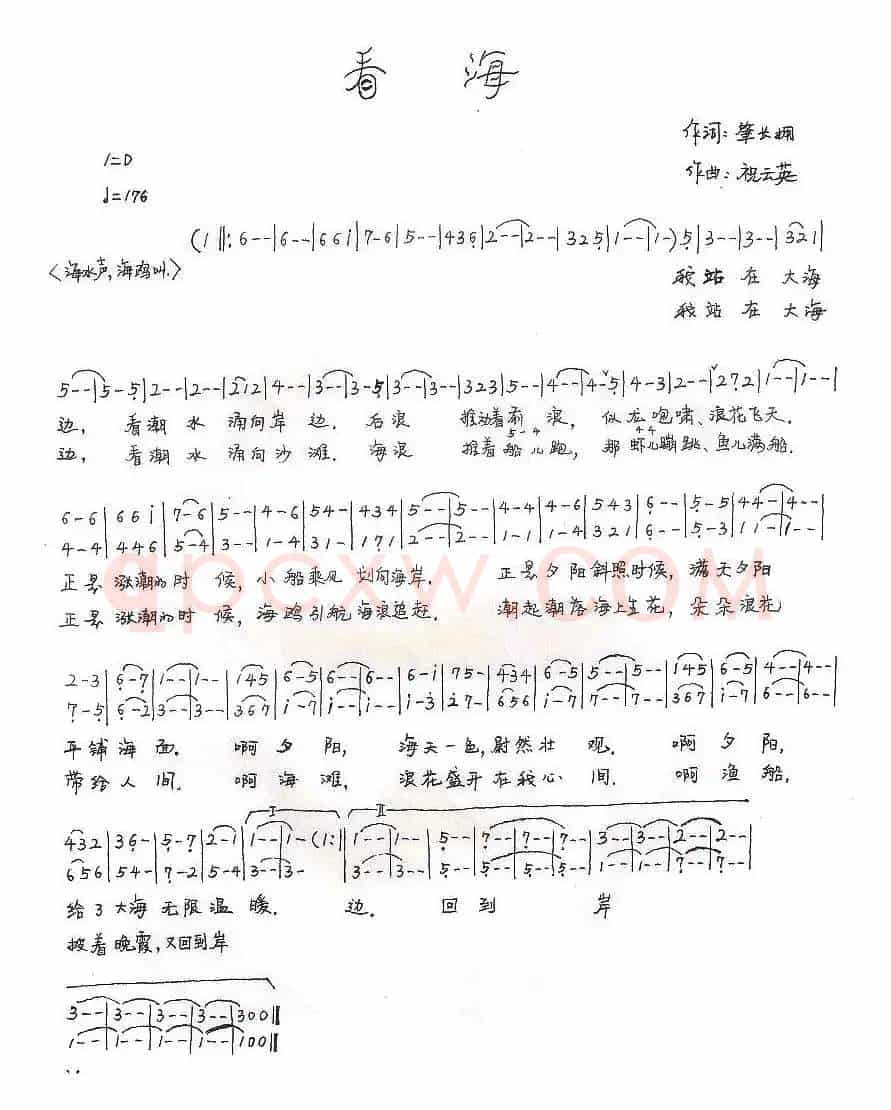 看 海
作词: 肇长姗
1=D
作曲: 祝云英
♩=176
(1 ‖: 6 - - | 6 - - | 6 6 i | 7 - 6 | 5 - - | 4 3 6 | 2 - - | 2 - - | 3 2 5 | 1 - - | 1 - ) 5 | 3 - - | 3 - - | 3 2 1 |
<海水声,海鸥叫.>
我站 在 大海
我站 在 大海
5 - - | 5 - 5 | 2 - - | 2 - - | 2 1 2 | 4 - - | 3 - - | 3 - 5 | 3 - - | 3 - - | 3 2 3 | 5 - - | 4 - - | 4 - 5 | 4 - 3 | 2 - - | 2 7 2 | 1 - - | 1 - - |
边, 看潮 水 涌向岸 边. 后浪 推动着前 浪, 似龙咆啸、浪花飞天.
5 - 4 4 4
边, 看潮 水 涌向沙 滩. 海浪 推着船儿跑, 那虾儿蹦跳、鱼儿满船.
6 - 6 | 6 6 i | 7 - 6 | 5 - - | 4 - 6 | 5 4 - | 4 3 4 | 5 - - | 5 - - | 4 - 4 | 4 - 6 | 5 4 3 | 6 - - | 5 - 5 | 4 4 - | 4 - - |
4 - 4 | 4 4 6 | 5 - 4 | 3 - - | 1 - 4 | 3 1 - | 1 7 1 | 2 - - | 2 - - | 1 - 1 | 1 - 4 | 3 2 1 | 6 - - | 5 - 3 | 1 1 - | 1 - - |
正是 涨潮的时 候, 小船乘风 划向海岸. 正是夕阳斜照时候, 满天夕阳
正是 涨潮的时 候, 海鸥引航 海浪追赶. 潮起潮落海上生花, 朵朵浪花
2 - 3 | 6 - 7 | 1 - - | 1 - - | 1 4 5 | 6 - 5 | 6 - - | 6 - - | 6 - i | 7 5 - | 4 3 4 | 6 - 5 | 5 - - | 5 - - | 1 4 5 | 6 - 5 | 4 - - | 4 - - |
7 - 5 | 6 - 2 | 3 - - | 3 - - | 3 6 7 | i - 7 | i - - | i - - | i - 3 | 2 7 - | 6 5 6 | i - 7 | 7 - - | 7 - - | 3 6 7 | i - 7 | 6 - - | 6 - - |
平铺海面. 啊 夕 阳, 海天一色,蔚然壮 观. 啊 夕 阳,
带给人 间. 啊 海 滩, 浪花盛开在我心 间. 啊 渔 船,
I II
4 3 2 | 3 6 - | 5 - 7 | 2 - 1 | 1 - - | 1 - (1 :‖ 1 - - | 1 - - | 5 - - | 7 - - | 7 - - | 7 - - | 3 - - | 3 - - | 2 - - | 2 - - |
6 5 6 | 5 4 - | 7 - 2 | 5 - 4 | 3 - - | 3 - ‖ 3 - - | 3 - - | 5 - - | 5 - - | 5 - - | 5 - - | 1 - - | 1 - - | 7 - - | 7 - - |
给了大海 无限温 暖. 边. 回 到 岸
披着晚霞, 又回到岸
3 - - | 3 - - | 3 - - | 3 - - | 3 0 0 ‖
1 - - | 1 - - | 1 - - | 1 - - | 1 0 0 ‖
qpcxw.COM